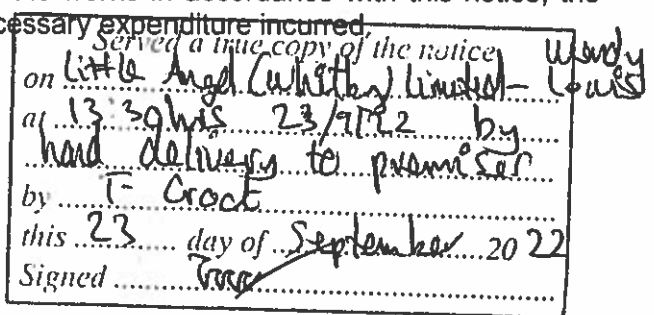 works in accordance with this notice, the
cessary expenditure incurred,
Served a true copy of the notice
on Little Angel (Whitby) Limited - Wendy Louis
at 13 30hrs 23/9/22 by
hand delivery to premises
by T. Crock
this 23 day of September 2022
Signed